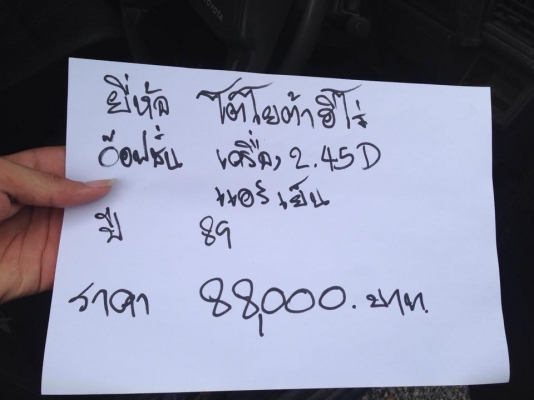 TOYOTA
ยี่ห้อ โตโยต้าฮีโร่
อ๊อฟชั่น เครื่อง 2.45D
แอร์เย็น
ปี 89
ราคา 88,000.บาท.